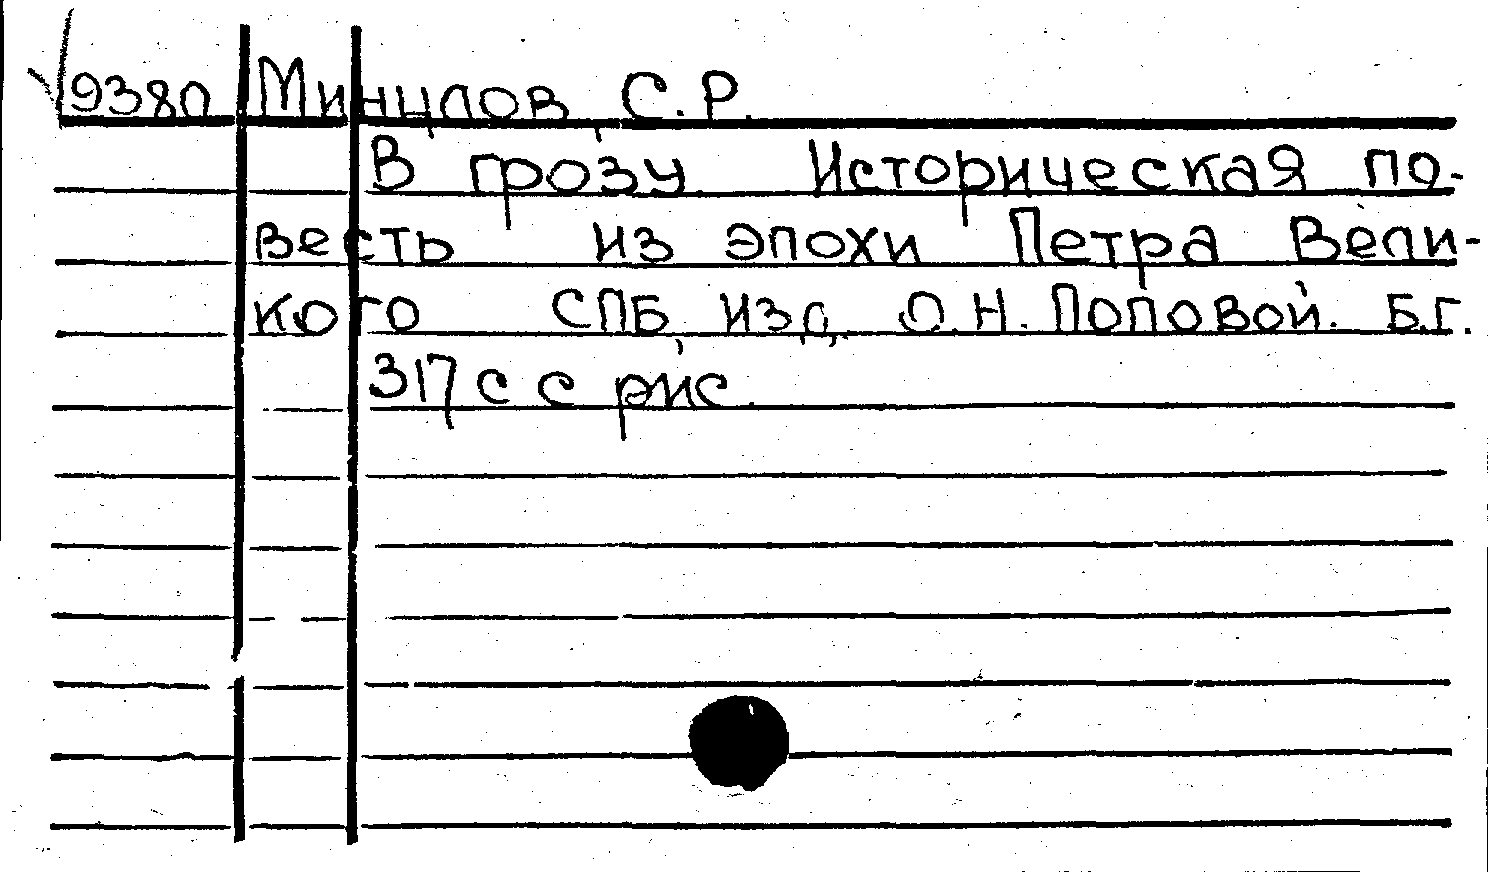 √9380 Минцлов, С.Р.
В грозу. Историческая по-
весть из эпохи Петра Вели-
кого СПБ, изд. О.Н. Поповой. Б.г.
317 с с рис.